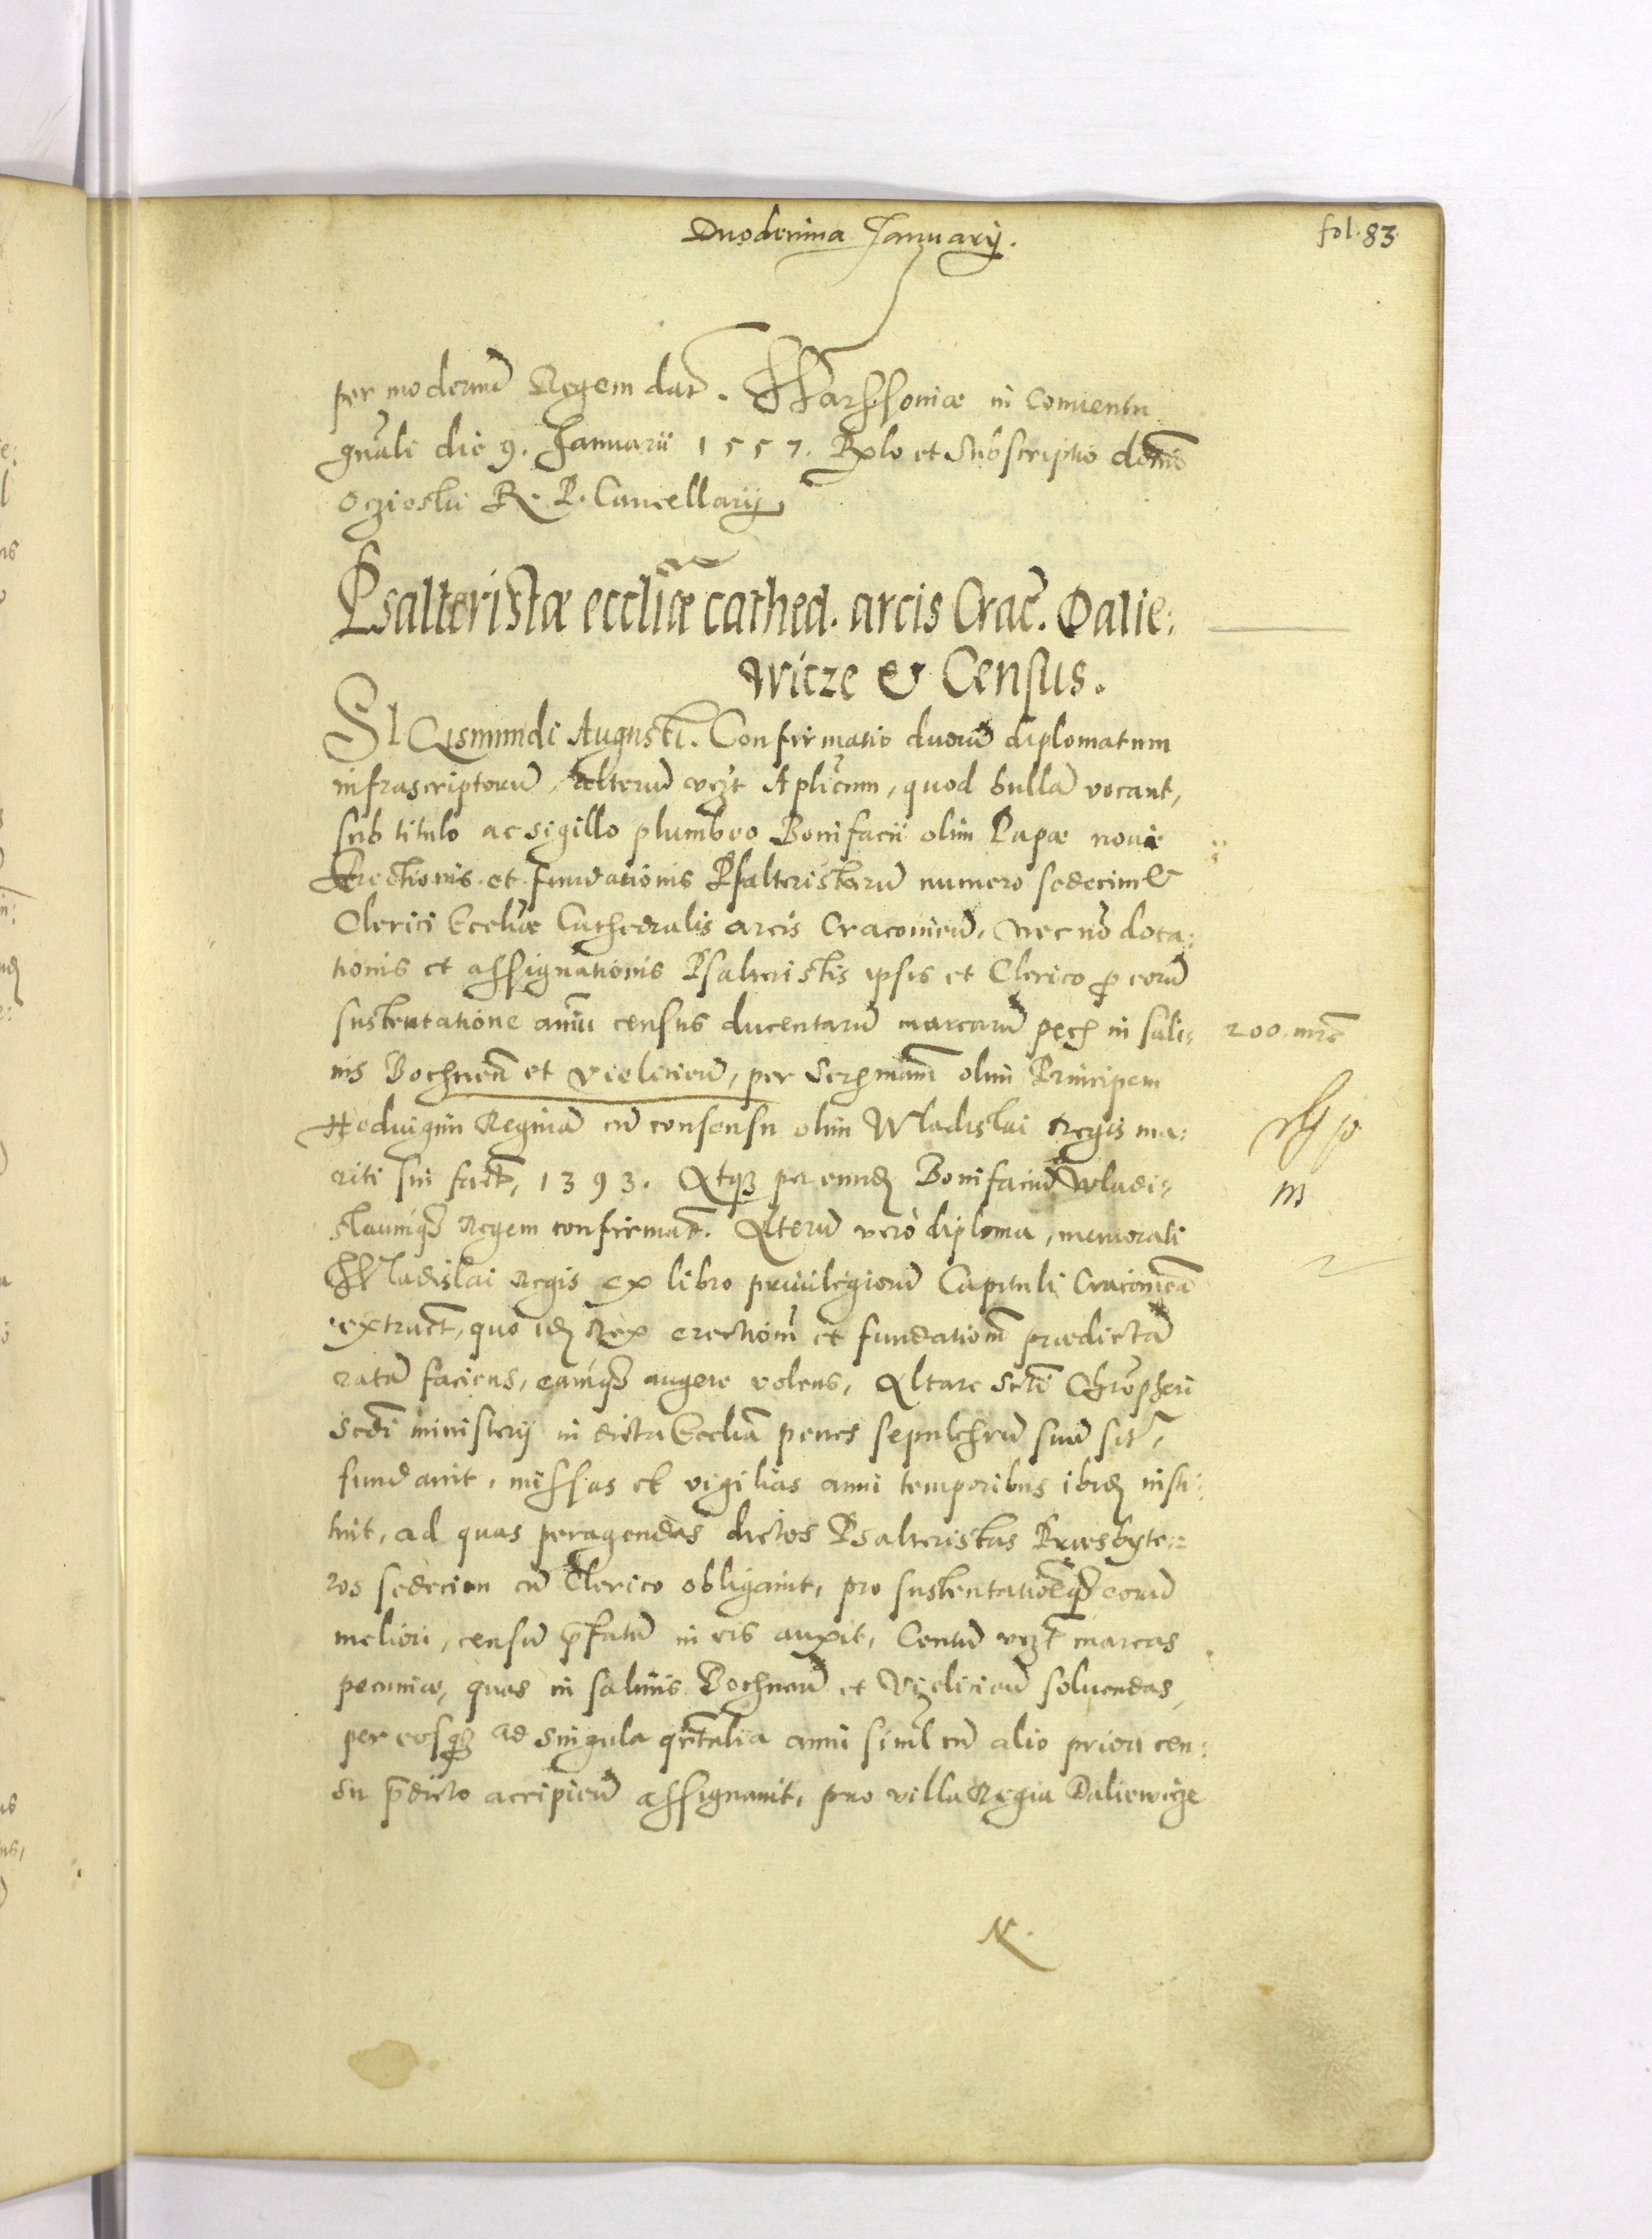 Duodecima Januarij.
fol. 83.
per modernũ Regem dat̃. Warssoviæ in Conventu
gnãli die 9. Januarii 1557. Rẽlo et Subscriptio domĩ
Oczieski R. P. Cancellarij
Psalteristæ eccliæ cathed. arcis Crac̃. Dalie:
wicze & Census.
SIGismundi Augusti. Confirmatio duorũ diplomatum
infrascriptorũ, alterũ vizt Aplicum, quod bullã vocant,
sub titulo ac sigillo plumbeo Bonifacii olim Papæ noni
Erectionis et fundationis Psalteristarũ numero sedecim &
Clerici Eccliæ Cathedralis arcis Cracovieñ, Nec nõ dota:
tionis et assignationis Psalteristis ipsis et Clerico ꝓ eorũ
sustentatione annui census ducentarũ marcarũ pec̃ in sali: 200. mrc̃
nis Bochneñ et Vieliciеñ, per Sermam̃ olim Principem
Heduigim Reginã cũ consensu olim Wladislai Regis ma:
riti sui fact̃, 1393. Atqꝫ per eundẽ Bonifaciũ Wladi:
m
slaumqꝫ Regem confirmat̃. Alterũ vero diploma, memorati
Wladislai Regis ex libro privilegiorũ Capituli Cracovieñ
extract̃, quo idẽ Rex erectionẽ et fundationẽ prædictã
ratã faciens, eamqꝫ augere volens, Altare Scti Christopheri
Scdi ministerij in dicta Ecclia penes sepulchrũ suũ sit̃,
fundavit, missas et vigilias anni temporibus ibidẽ insti:
tuit, ad quas peragendas dictos Psalteristas Præsbyte:
ros sedecim cũ Clerico obligavit, pro sustentationeqꝫ eorũ
meliori, censũ p̃fatũ in eis auxit, Centũ vizt marcas
pecuniæ, quas in salinis Bochneñ et Vieliciеñ solvendas,
per eosqꝫ ad singula qrtalia anni simul cũ alio priori cen:
su p̃dicto accipieñ assignavit, pro villa Regia Daliewicze
N.